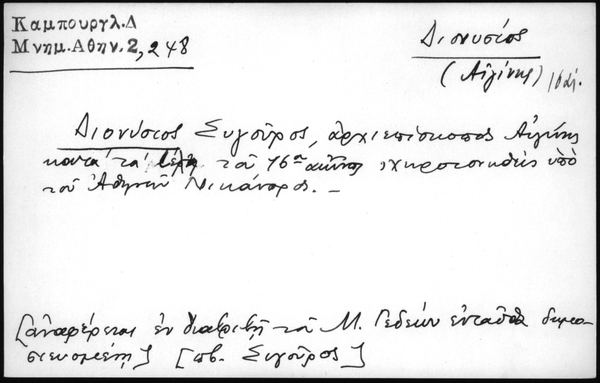 Καμπουργλ.Δ
Μνημ.Αθην.2, 248
Διονύσιος
(Αἰγίνης) 16 αἰ.
Διονύσιος Σιγοῦρος, ἀρχιεπίσκοπος Αἰγίνης
κατὰ τὰ τέλη τοῦ 16ου αἰῶνος χειροτονηθεὶς ὑπὸ
τοῦ Ἀθηνῶν Νικάνορος. —
[ἀναφέρεται ἐν διατριβῇ τοῦ Μ. Γεδεών ἐνταῦθα δημο-
σιευομένῃ] [πβ. Σιγοῦρος]